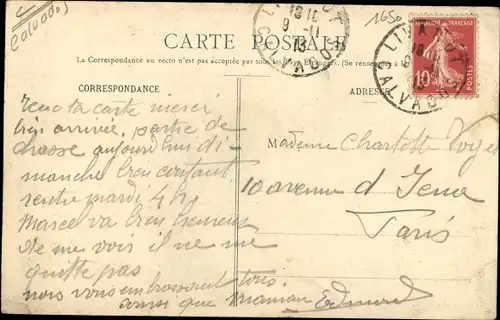 (Calvados)
1650
CARTE POSTALE
La Correspondance au recto n'est pas acceptée par tous les
Étrangers. (Se renseigner
CORRESPONDANCE
ADRESSE
LIVAROT
CALVADOS
18 10
9 - 11
13
LIVAROT
CALVADOS
RÉPUBLIQUE FRANÇAISE
10c
POSTES
Recu ta carte merci
bien arrivée, partie de
chasse aujourd'hui di-
manche bien contant
rentre mardi 4 h
Marcel va bien heureux
de me voir il ne me
quitte pas
nous vous embrassont tous
ainsi que maman Edmond
Madame Charlotte
10 avenue d'Iena
Paris